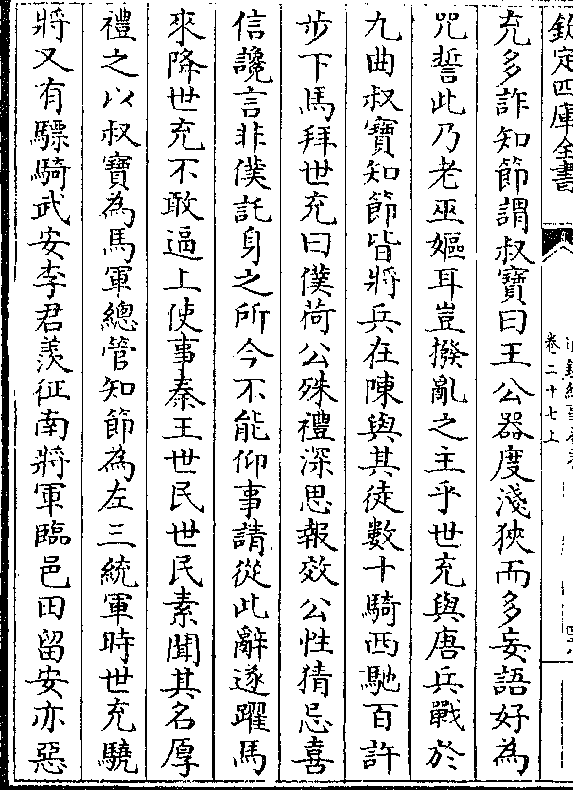 欽定四庫全書
卷二十七上
充多詐知節謂叔寶曰王公器度淺狹而多妄語好為
咒誓此乃老巫嫗耳豈撥亂之主乎世充與唐兵戰於
九曲叔寶知節皆將兵在陳與其徒數十騎西馳百許
步下馬拜世充曰僕荷公殊禮深思報效公性猜忌喜
信讒言非僕託身之所今不能仰事請從此辭遂躍馬
來降世充不敢逼上使事秦王世民世民素聞其名厚
禮之以叔寶為馬軍總管知節為左三統軍時世充驍
將又有驃騎武安李君羨征南將軍臨邑田留安亦惡